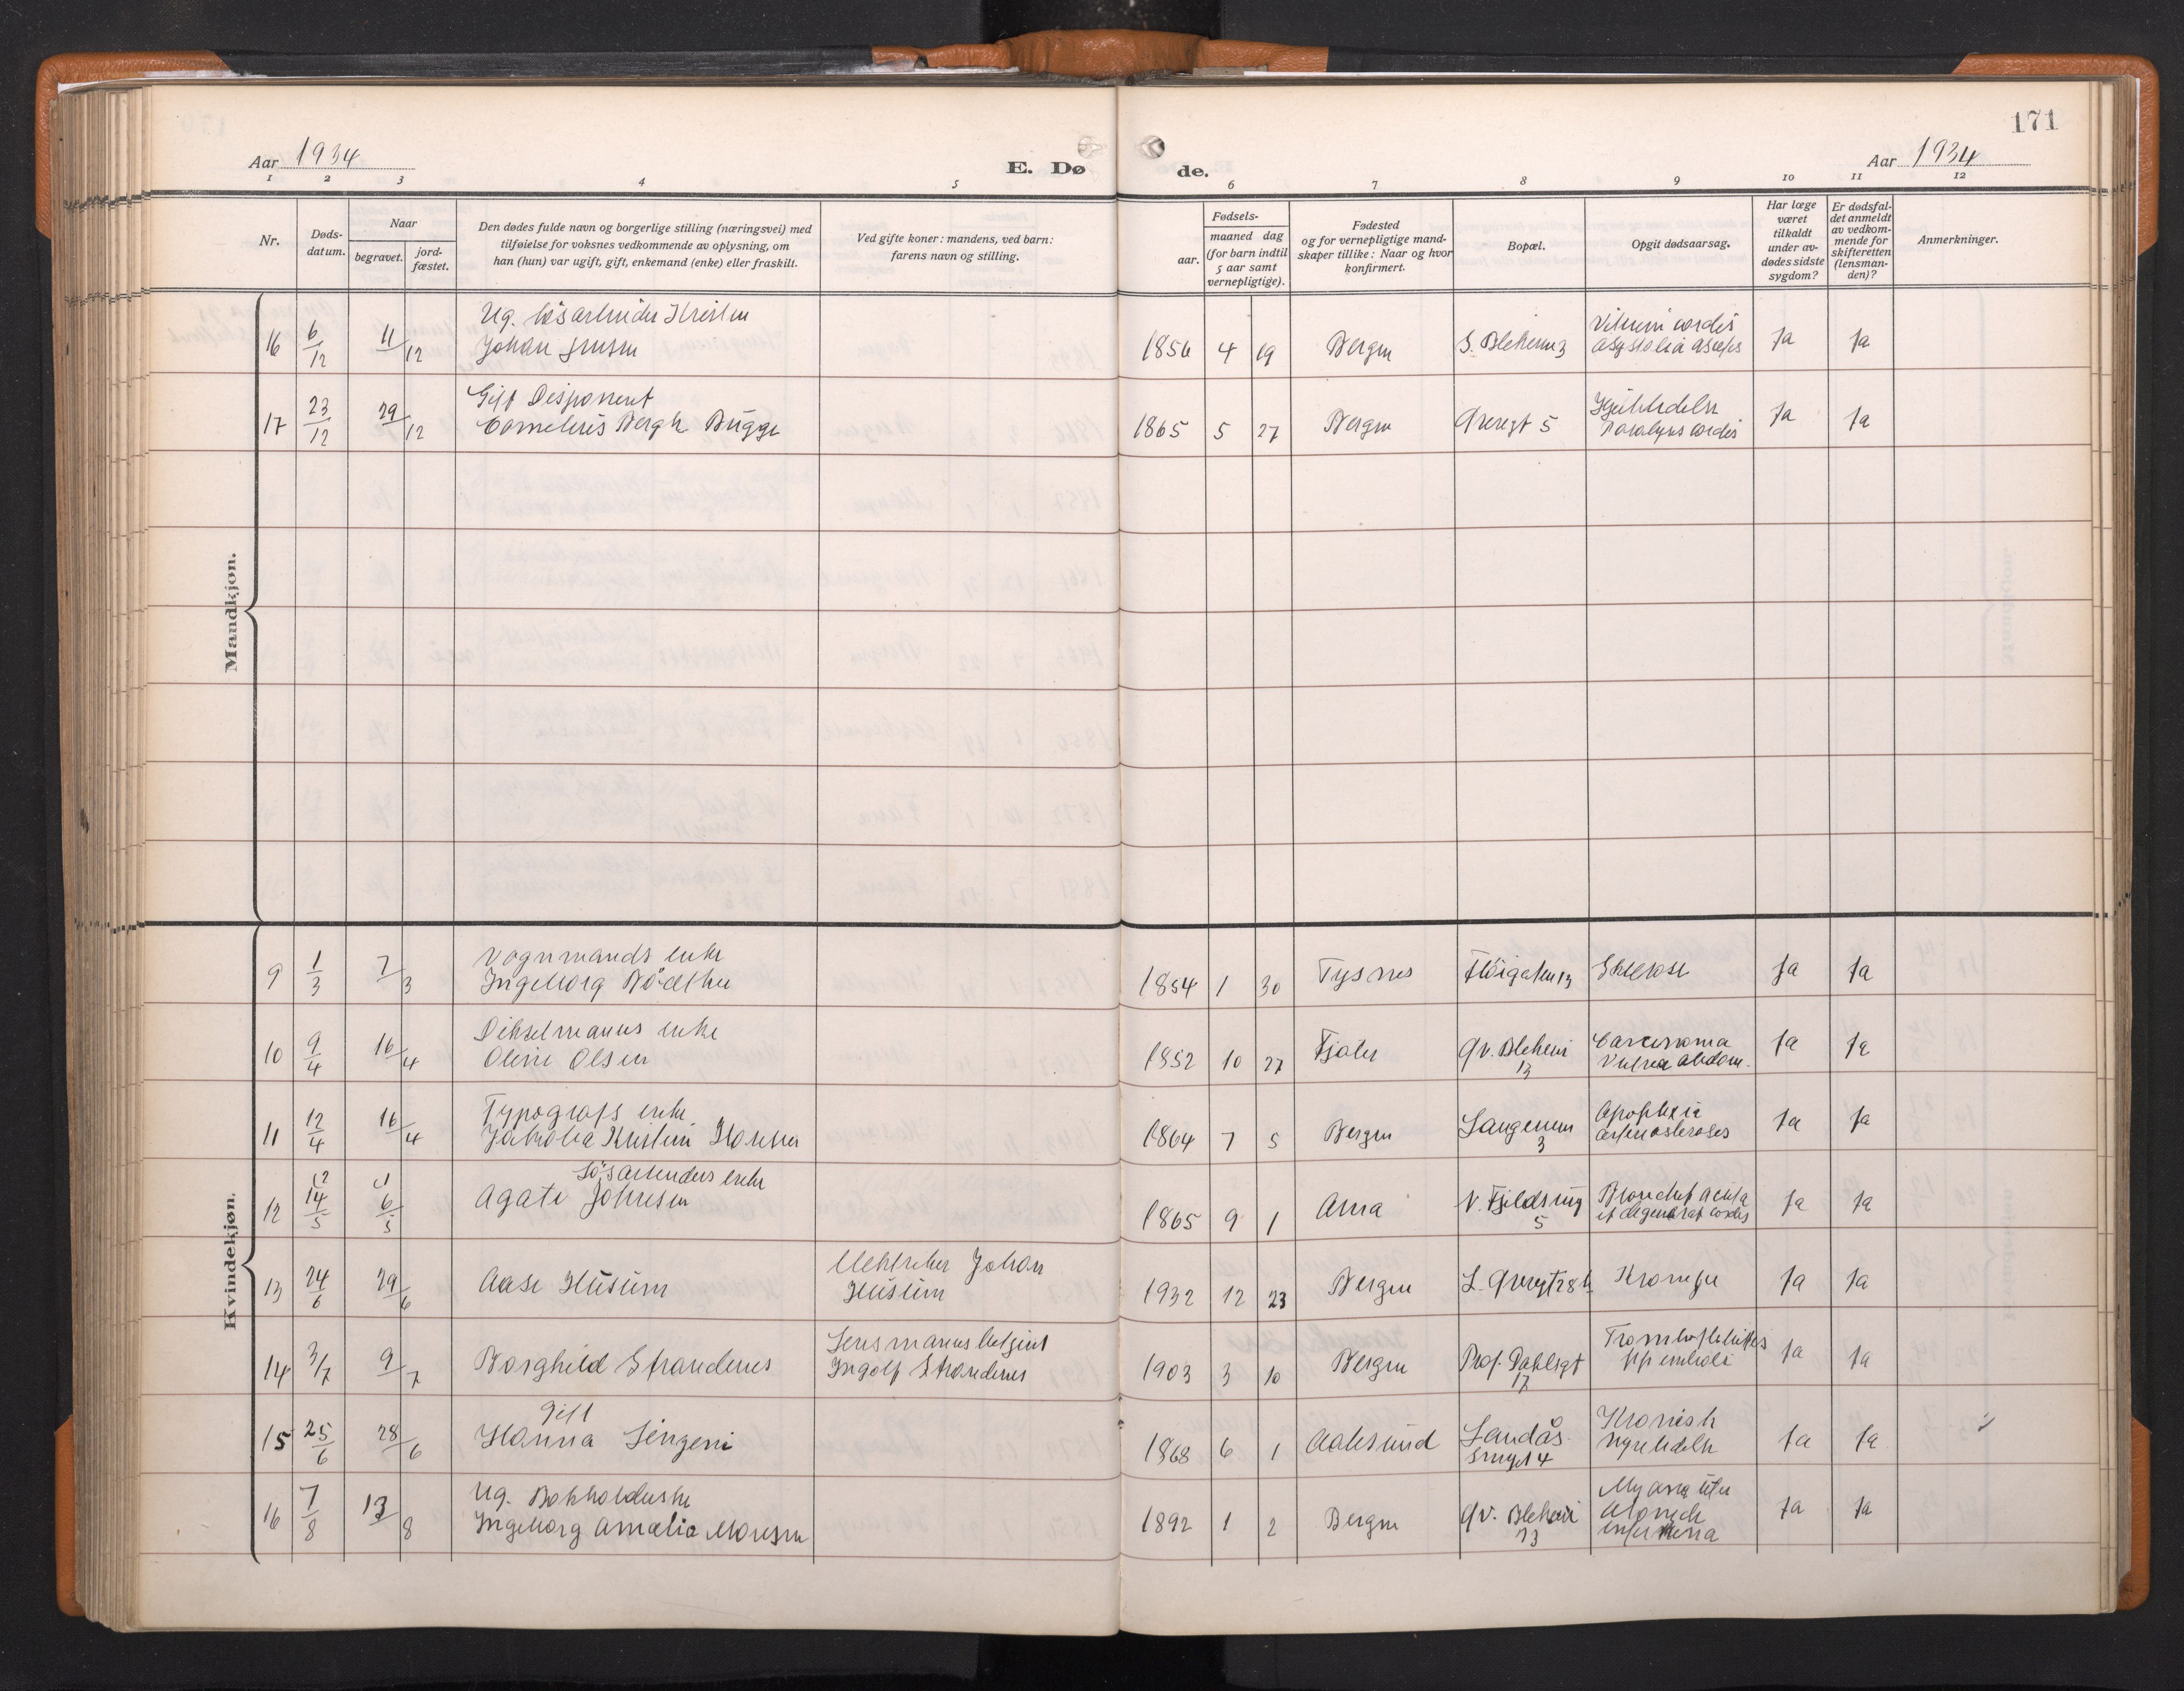 171
Aar 1934
E. Dø
de.
Aar 1934
1 2 3 4 5 6 7 8 9 10 11 12
Nr.
Døds-
datum.
Naar
begravet.
jord-
fæstet.
Den dødes fulde navn og borgerlige stilling (næringsvei) med
tilføielse for voksnes vedkommende av oplysning, om
han (hun) var ugift, gift, enkemand (enke) eller fraskilt.
Ved gifte koner: mandens, ved barn:
farens navn og stilling.
Fødsels-
aar.
maaned dag
(for barn indtil
5 aar samt
vernepligtige).
Fødested
og for vernepligtige mand-
skaper tillike: Naar og hvor
konfirmert.
Bopæl.
Opgit dødsaarsag.
Har læge
været
tilkaldt
under av-
dødes sidste
sygdom?
Er dødsfal-
det anmeldt
av vedkom-
mende for
skifteretten
(lensman-
den)?
Anmerkninger.
Mandkjøn.
Ug. løsarbeider Kristen
16 6/12 11/12 Johan Jensen 1856 4 19 Bergen S. Blekevei 3 asystolia ascites Ja Ja
Gift Disponent
17 23/12 29/12 Cornelius Bergh Brügge 1865 5 27 Bergen Øvregt 5 Paralysis cordis Ja Ja
Kvindekjøn.
Vognmands enke
9 1/3 7/3 Ingeborg 1854 1 30 Tysnes Fløigaten 13 Sklerose Ja Ja
enke
10 9/4 16/4 Oline Olsen 1852 10 27 Fjaler Øv. Blekevei 13 Carcinoma Vulva abdom. Ja Ja
Typografs enke
11 12/4 16/4 Jakobia Kristine Hansen 1864 7 5 Bergen 3 Apoplexia arteriosclerosis Ja Ja
Løsarbeiders enke
12 14/5 6/5 Agate Johnsen 1865 9 1 Arna N. Fjeldsmug 5 Bronchit acuta et degenerat cordis Ja Ja
13 24/6 29/6 Aase Husum Johan Husum 1932 12 23 Bergen L. Øvregt 28 b Ja Ja
14 3/7 9/7 Borghild Strandenes Lensmannsbetjent Ingolf Strandenes 1903 3 10 Bergen Prof. Dahlsgt 17 emboli Ja Ja
Gift
15 25/6 28/6 Hanna 1868 6 1 Aalesund Landås smuget 4 Kronisk Nyrelidelse Ja Ja
Ug. Bokholderske
16 7/8 13/8 Ingeborg Amalie Monsen 1892 1 2 Bergen Øv. Blekevei 13 Ja Ja